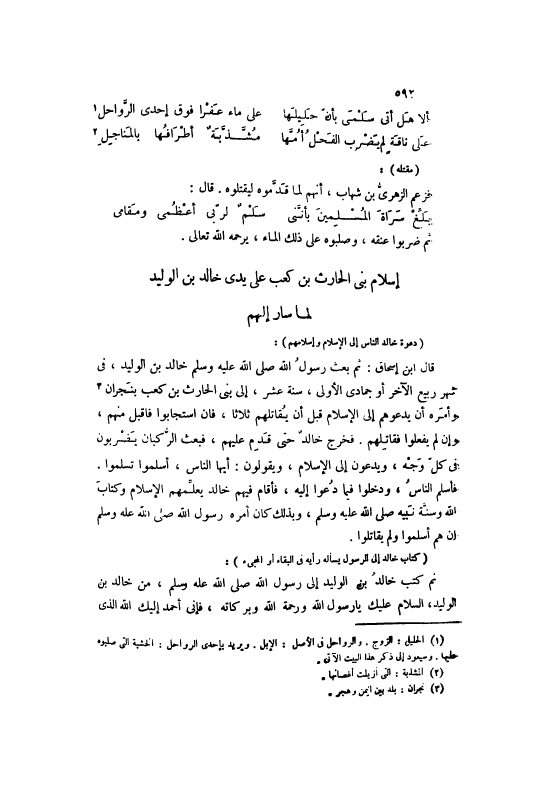 ٥٩٢
ألا هل أتى سَلْمَى بأنّ حَلِيلَها على ماء عَفْرا فوق إحدى الرَّواحل١
على ناقةٍ لم يَضْرب الفَحْلُ أُمَّها مُشَذَّبَةٌ أطْرافُها بالمَناجيلِ٢
( مقتله ) :
فزعم الزهرىّ بن شهاب ، أنهم لما قدَّموه ليقتلوه . قال :
بَلِّغْ سَرَاةَ المُسْلِمِينَ بأنَّنى سَلْمٌ لربِّى أعْظُمى ومَقامى
ثم ضربوا عنقه ، وصلبوه على ذلك الماء ، يرحمه الله تعالى .
إسلام بنى الحارث بن كعب على يدى خالد بن الوليد
لما سار إليهم
( دعوة خالد الناس إلى الإسلام وإسلامهم ) :
قال ابن إسحاق : ثم بعث رسولُ الله صلى الله عليه وسلم خالد بن الوليد ، فى
شهر ربيع الآخر أو جمادى الأولى ، سنة عشر ، إلى بنى الحارث بن كعب بنَجران٣
وأمَره أن يدعوهم إلى الإسلام قبل أن يُقاتلهم ثلاثا ، فان استجابوا فاقبل منهم ،
وإن لم يفعلوا فقاتلهم . فخرج خالدٌ حتى قدِم عليهم ، فبعث الرُّكبان يَضْربون
فى كلّ وَجْه ، ويدعون إلى الإسلام ، ويقولون : أيها الناس ، أسلموا تسلموا .
فأسلم الناسُ ، ودخلوا فيما دُعوا إليه ، فأقام فيهم خالد يعلِّمهم الإسلام وكتابَ
الله وسنَّة نَبيه صلى الله عليه وسلم ، وبذلك كان أمره رسول الله صلى الله عليه وسلم
إن هم أسلموا ولم يقاتلوا .
( كتاب خالد إلى الرسول يسأله رأيه فى البقاء أو المجىء ) :
ثم كتب خالدُ بن الوليد إلى رسول الله صلى الله عله وسلم ، من خالد بن
الوليد، السلام عليك يارسول الله ورحمة الله وبركاته ، فإنى أحمد إليك الله الذى
(١) الحليل : الزوج . والرواحل فى الأصل : الإبل . ويريد بإحدى الرواحل : الخشبة التى صلبوه
عليها . وسيعود إلى ذكر هذا البيت الآتى .
(٢) المشذبة : التى أزيلت أغصانها .
(٣) نجران : بلد بين اليمن وهجر .